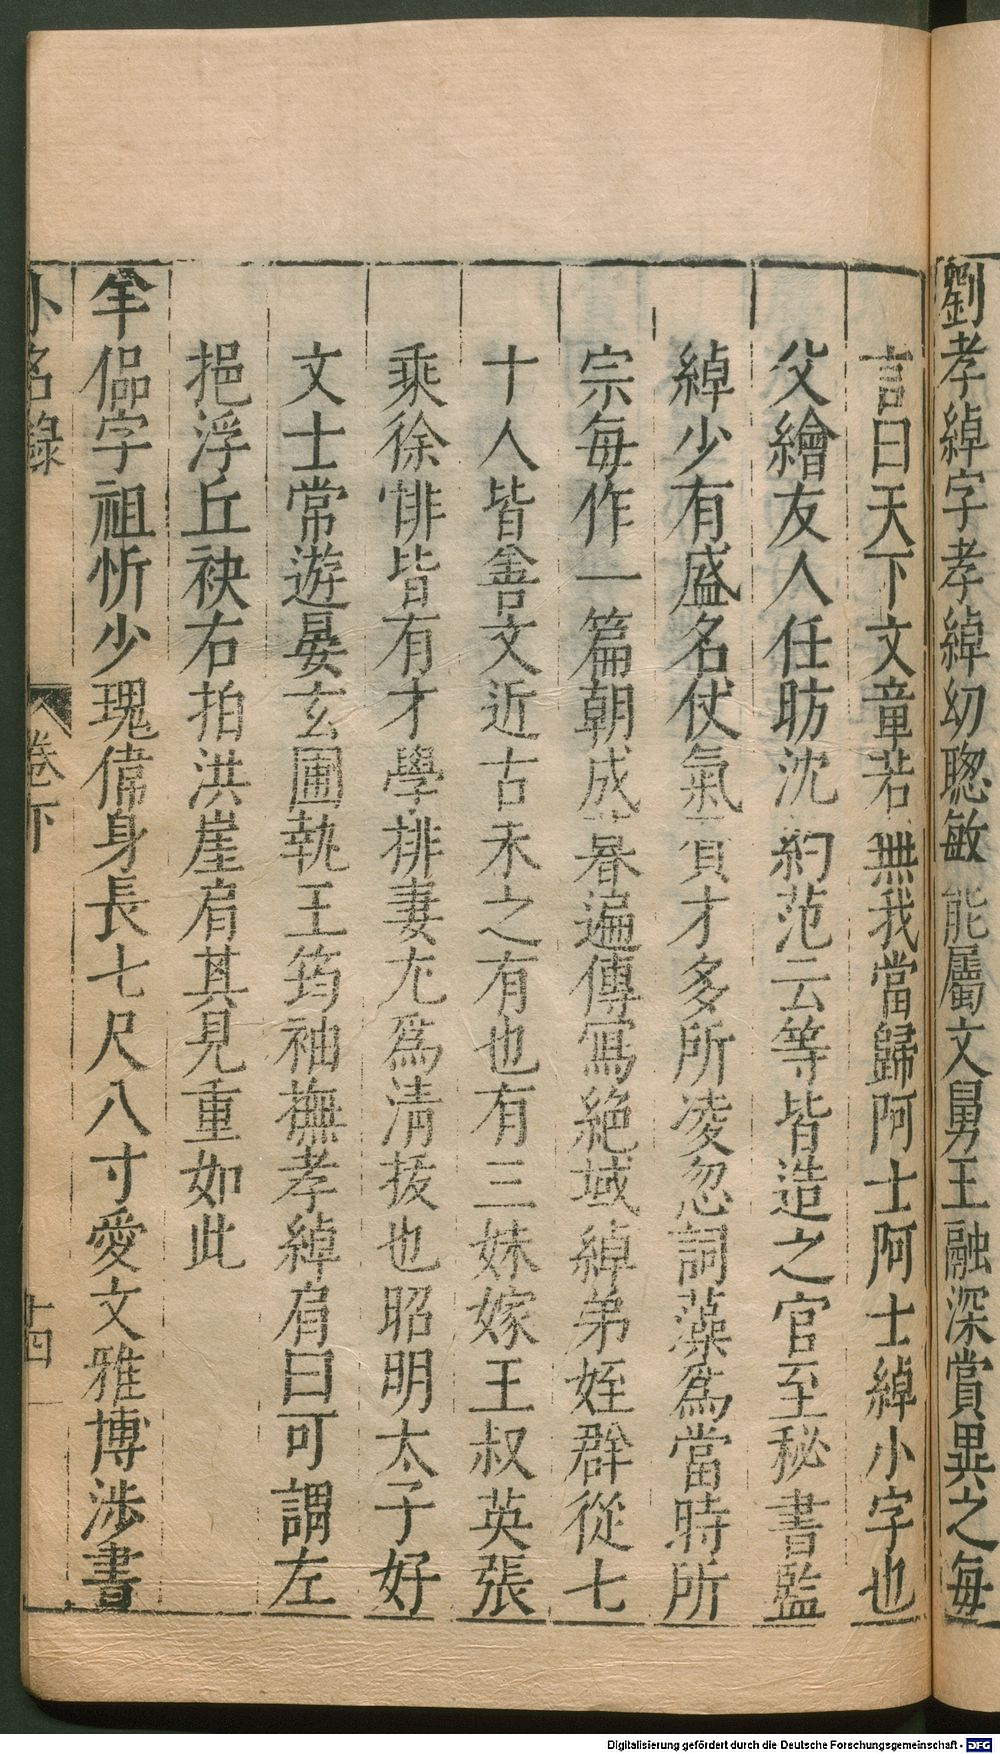 劉孝綽字孝綽幼聦敏能屬文舅王融深賞異之每
言曰天下文章若無我當歸阿士阿士綽小字也
父繪友人任昉沈約范云等皆造之官至秘書監
綽少有盛名仗氣負才多所凌忽詞藻爲當時所
宗每作一篇朝成暮遍傳寫絶域綽弟姪群從七
十人皆善文近古未之有也有三妹嫁王叔英張
乘徐悱皆有才學排妻尤爲清拔也昭明太子好
文士常遊晏玄圃執王筠袖撫孝綽肩曰可謂左
挹浮丘袂右拍洪崖肩其見重如此
羊偘字祖忻少瑰偉身長七尺八寸愛文雅博涉書
小名錄 卷下 十四
Digitalisierung gefördert durch die Deutsche Forschungsgemeinschaft - DFG